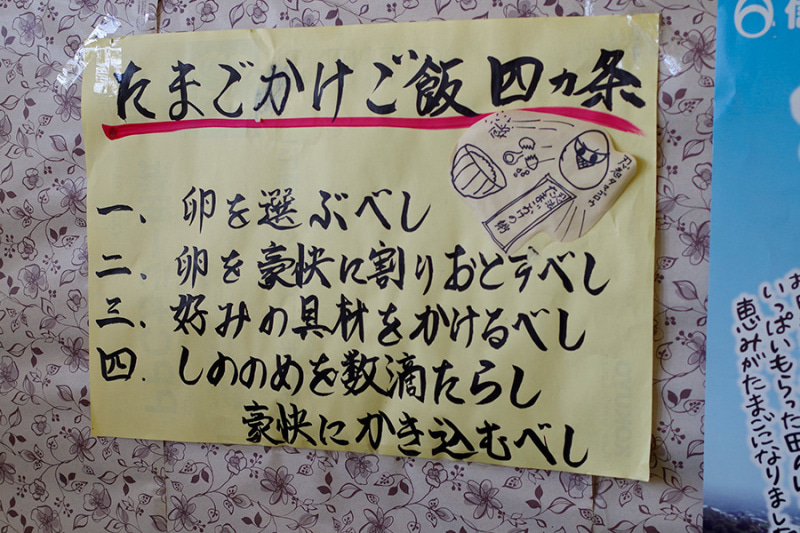 たまごかけご飯 四カ条
一、卵を選ぶべし
二、卵を豪快に割りおとすべし
三、好みの具材をかけるべし
四、しののめを数滴たらし
豪快にかき込むべし
6
いっぱいもらった田の
恵みがたまごになりまし